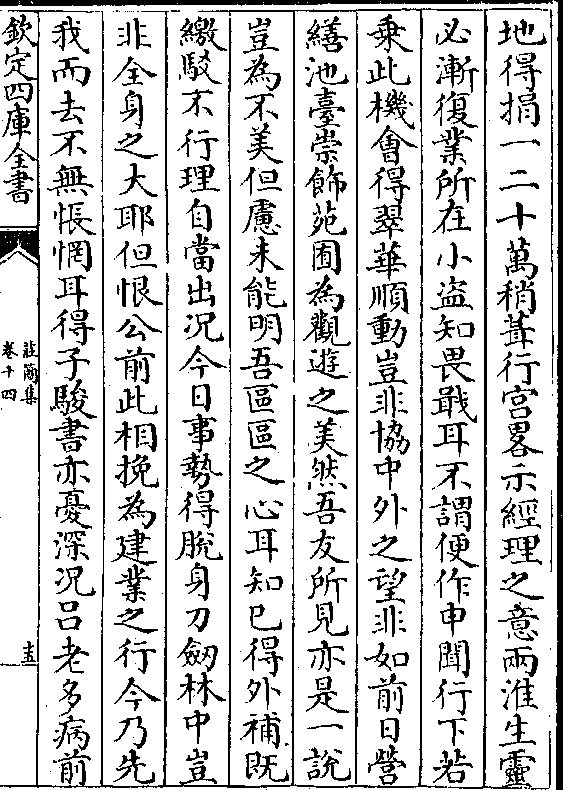 地得捐一二十萬稍葺行宫畧示經理之意兩淮生靈
必漸復業所在小盗知畏戢耳不謂便作申聞行下若
乗此機會得翠華順動豈非協中外之望非如前日營
繕池臺崇飾苑囿為觀遊之美然吾友所見亦是一說
豈為不美但慮未能明吾區區之心耳知已得外補既
繳駁不行理自當出况今日事勢得脫身刀劒林中豈
非全身之大耶但恨公前此相挽為建業之行今乃先
我而去不無悵惘耳得子駿書亦憂深况吕老多病前
欽定四庫全書
卷十四
十五